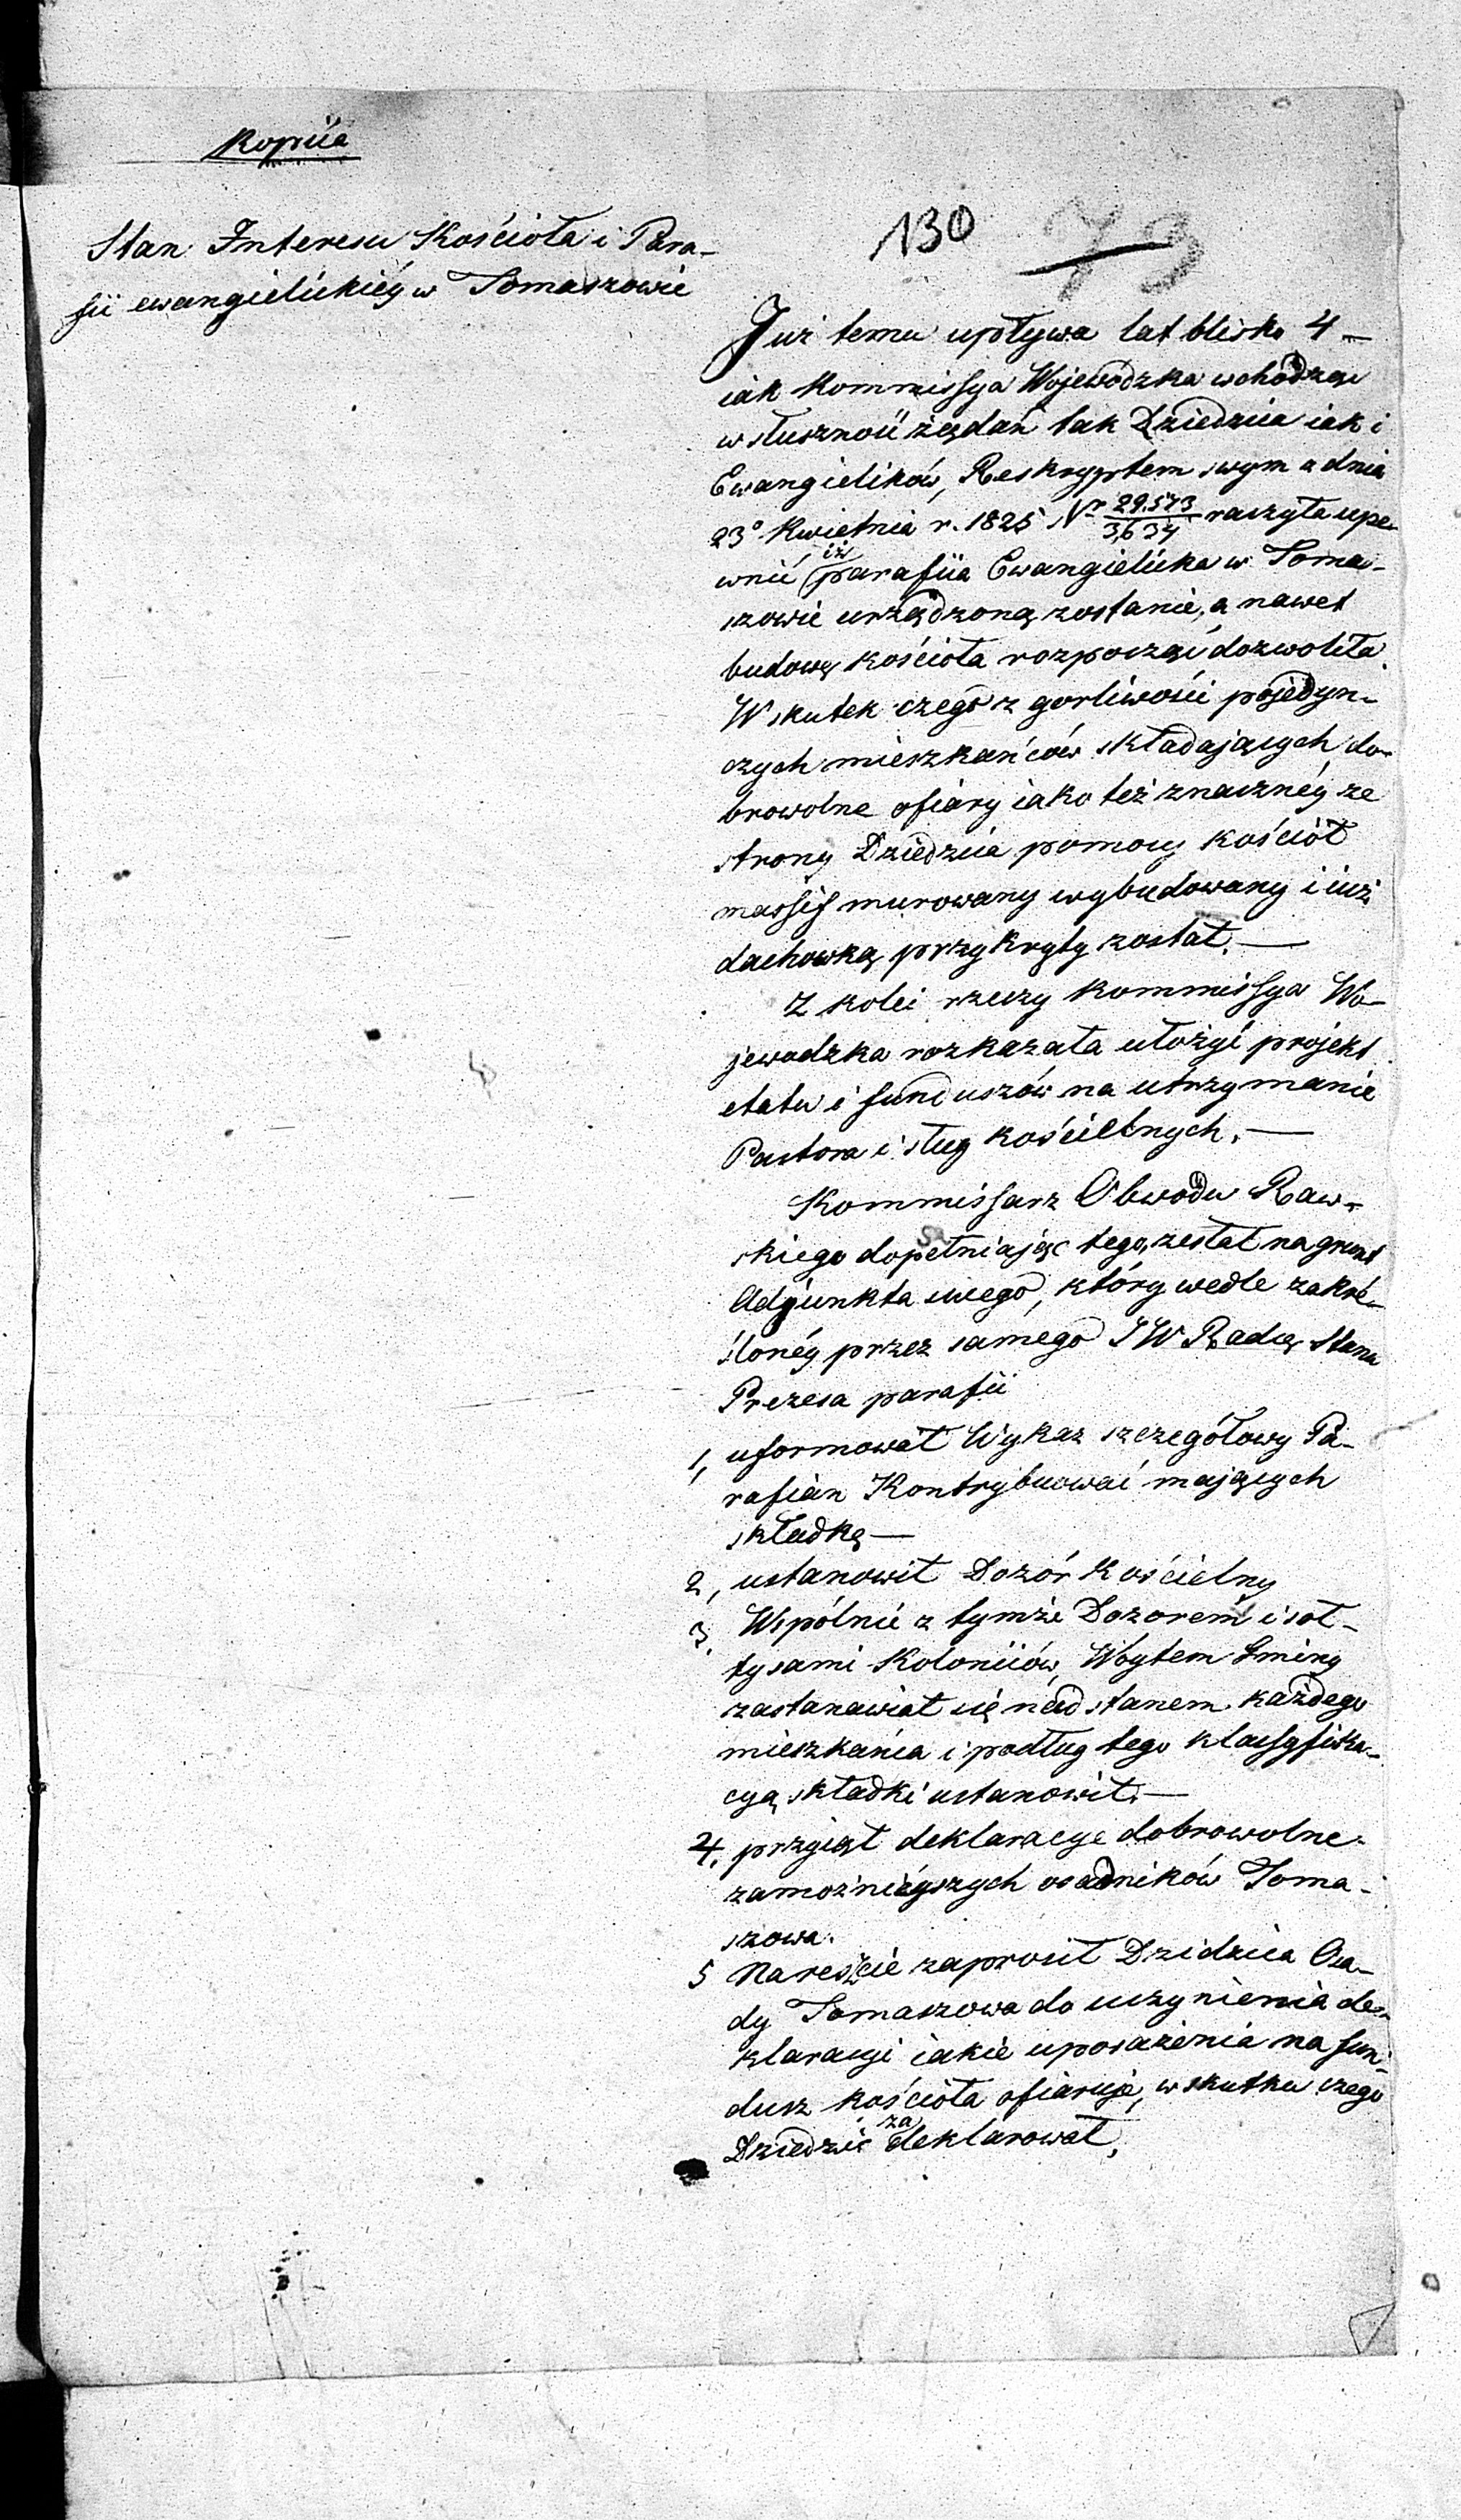 Kopiia
Stan Interesu Kościoła i Para-
fii ewangielickiéy w Tomaszowie
130
79
Już temu upływa lat blisko 4 —
iak Kommissya Wojewódzka wchodząc
w słuszność żądań tak Dziedzica iak i
Ewangielików, Reskryptem swym z dnia
23º Kwietnia r. 1825 Nr 29.573/3,634 raczyła upe-
wnić iż parafiia Ewangielicka w Toma-
szowie urządzoną zostanie, a nawet
budowę kościoła rozpocząć dozwoliła.
W skutek czego z gorliwości pojedyn-
czych mieszkańców składających do-
browolne ofiary iako też znacznéy ze
strony Dziedzica pomocy kościół
massif murowany wybudowany i iuż
dachowką przykryty został. —
Z kolei rzeczy Kommissya Wo-
jewodzka rozkazała ułożyć projekt
etatu i funduszów na utrzymanie
Pastora i sług kościelnych. —
Kommissarz Obwodu Raw-
skiego dopełniając tego, zesłał na grunt
Adjunkta swego, który wedle zakré-
ślonéy przez samego JW Radcę Stanu
Prezesa parafii
1, uformował Wykaz szczegółowy Pa-
rafian Kontrybuować mających
składkę —
2, ustanowił Dozór Kościelny
3. Wspólnie z tymże Dozorem i soł-
tysami Koloniiów, Woytem Gminy
zastanawiał się nad stanem każdego
mieszkańca i podług tego klassyfika-
cyą składki ustanowił. —
4. przyiął deklaracye dobrowolne
zamożnieyszych osadników Toma-
szowa.
5 Nareszcie zaprosił Dzidzica Osa-
dy Tomaszowa do uczynienia de-
klaracyi iakie uposażenia na fun-
dusz kościoła ofiaruje, w skutku czego
Dziedzic zadeklarował,